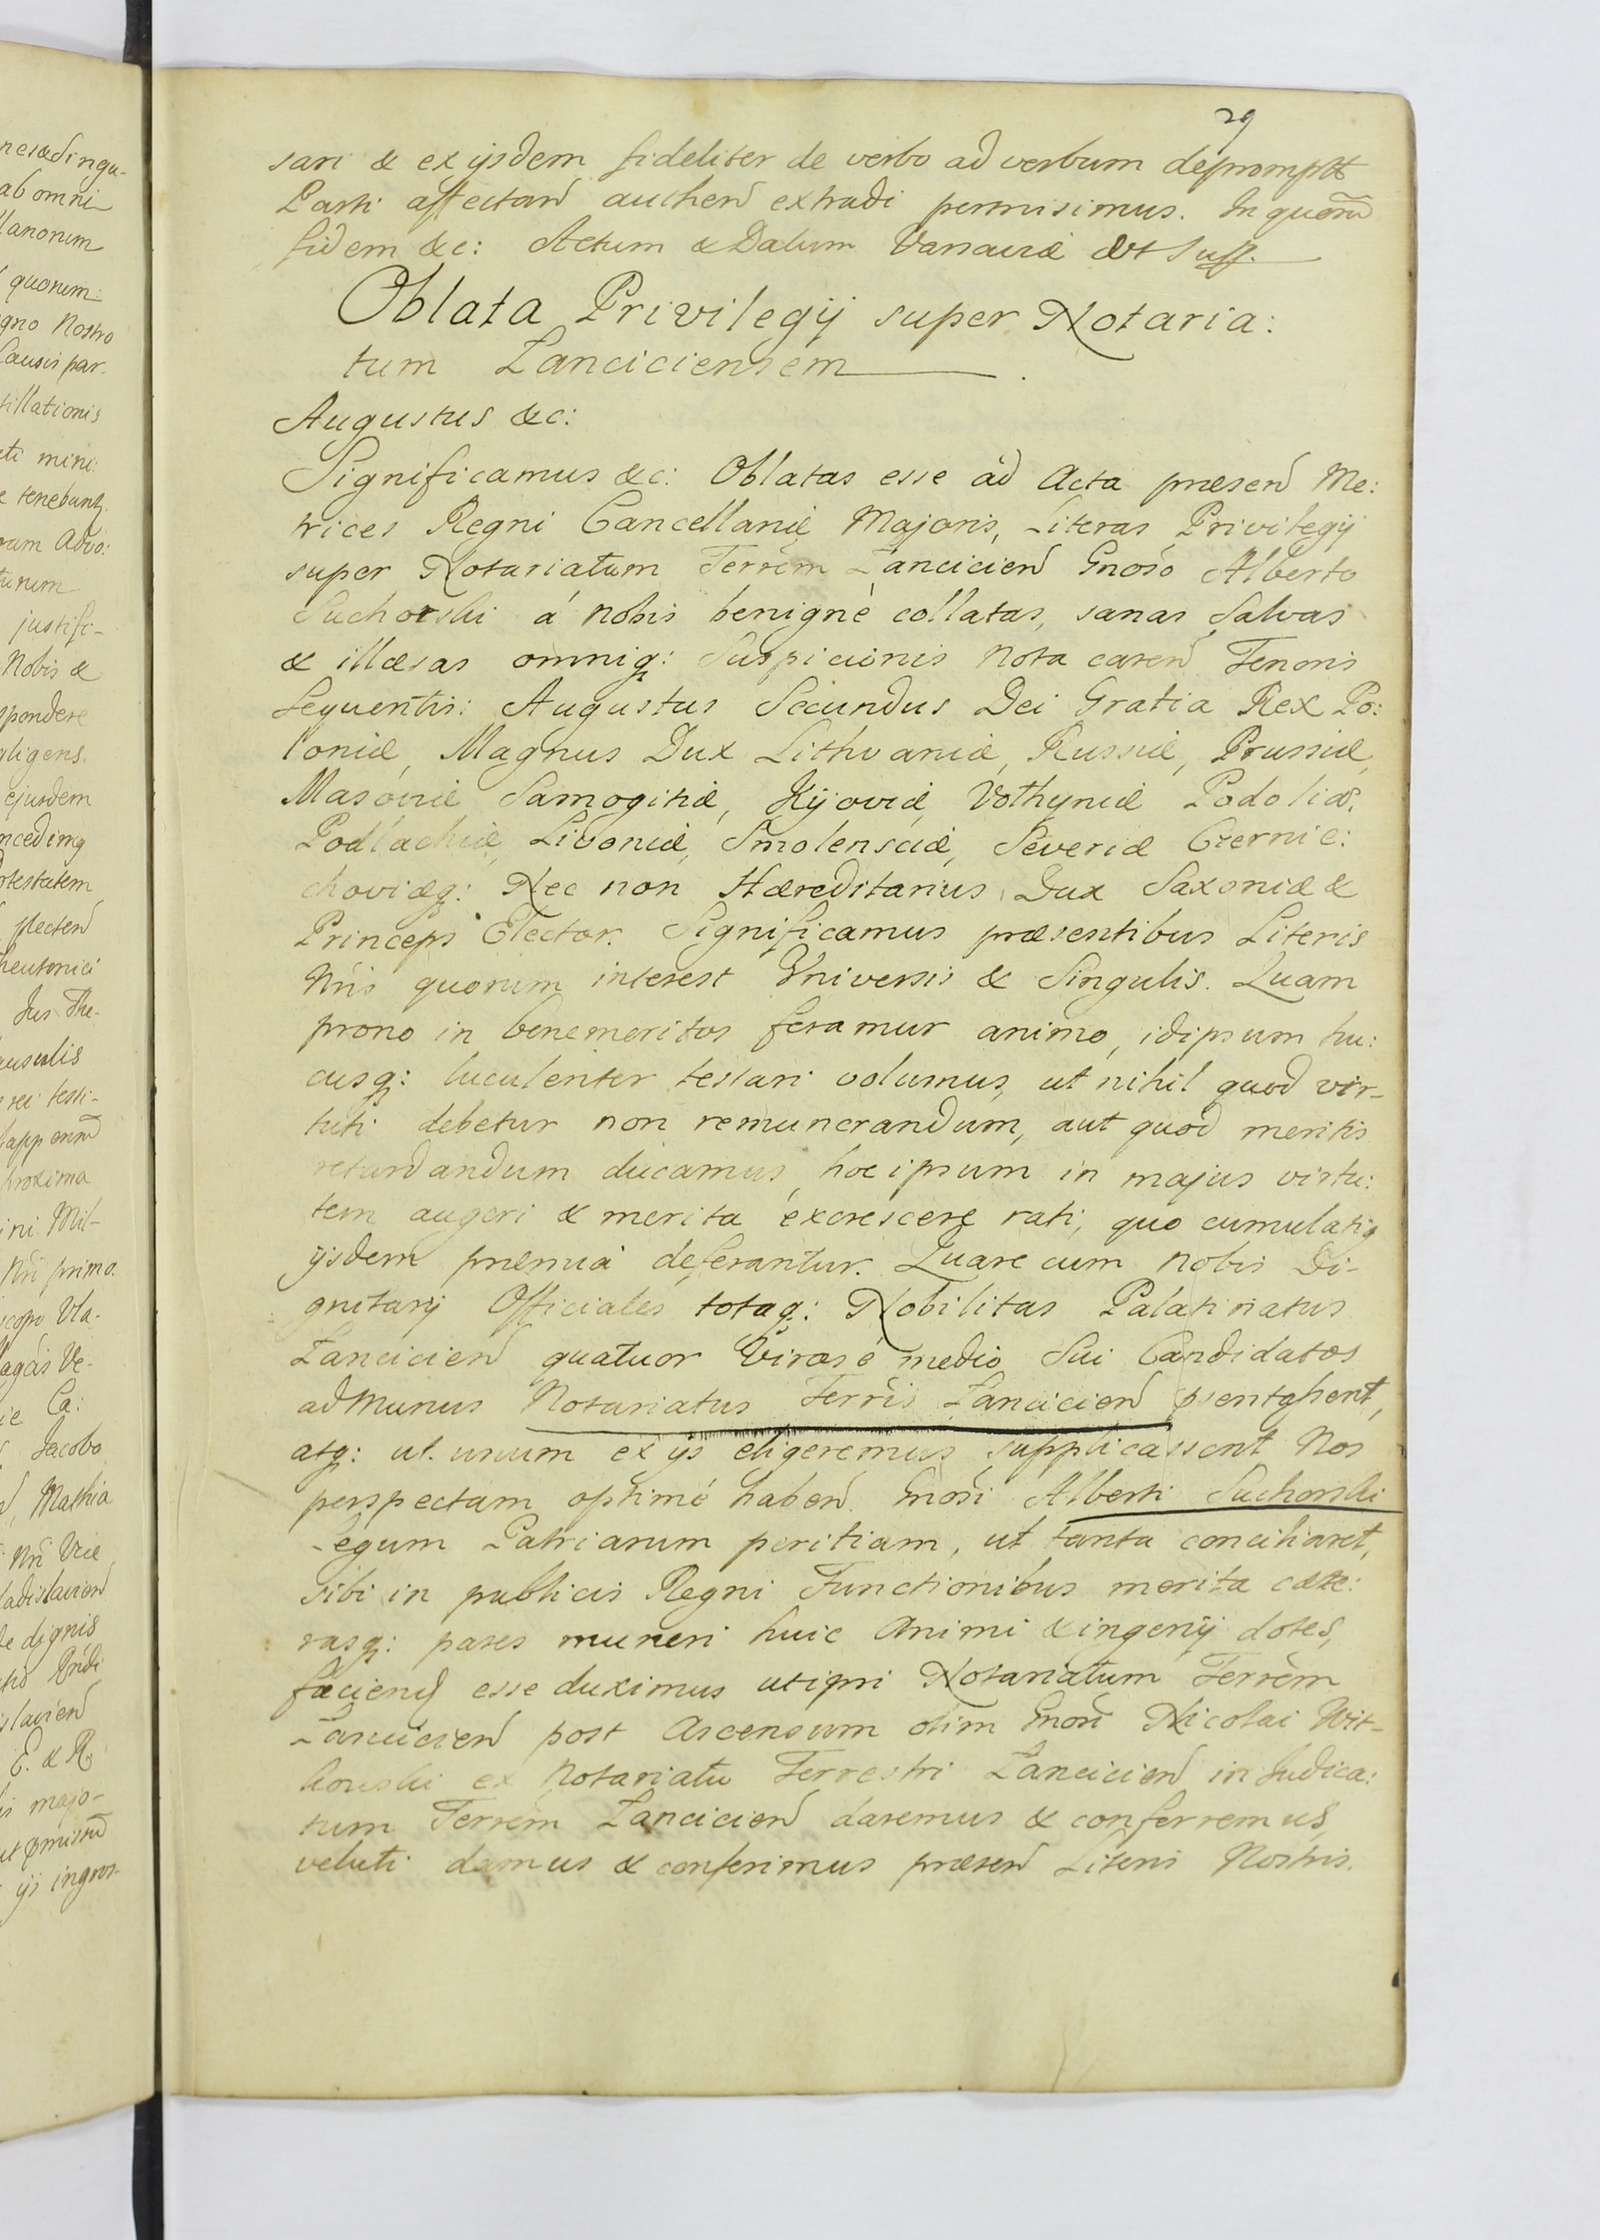 29
sari & ex ijsdem fideliter de verbo ad verbum deprompt
Parti affectan authen extradi permisimus. In quorū
fidem &c: Actum & Datum Varsaviæ ut Supp.
Oblata Privilegij super Notaria:
tum Lanciciensem
Augustus &c:
Significamus &c: Oblatas esse ad Acta præsen Me:
trices Regni Cancellariæ Majoris, Literas Privilegij
super Notariatum Terrēm Lancicien Gnoso Alberto
Suchorski á nobis benignè collatas, sanas Salvas
& illæsas omniq: Suspicionis nota caren Tenoris
Sequentis: Augustus Secundus Dei Gratia Rex Po:
loniæ, Magnus Dux Lithvaniæ, Russiæ, Prussiæ,
Masoviæ Samogitiæ, Kijoviæ, Volhyniæ Podoliæ,
Podlachiæ, Livoniæ, Smolensciæ, Severiæ Czernie:
choviæq: Nec non Hæreditarius Dux Saxoniæ &
Princeps Elector. Significamus præsentibus Literis
Nr̄is quorum interest Vniversis & Singulis. Quam
prono in benemeritos feramur animo, idipsum hu:
cusq: luculenter testari volumus, ut nihil quod vir-
tuti debetur non remunerandum, aut quod meritis
retardandum ducamus, hoc ipsum in majus virtu:
tem augeri & merita excrescere rati, quo cumulatiq
ijsdem præmia deferantur. Quare cum nobis Di-
gnitarij Officiales totaq: Nobilitas Palatinatus
Lancicien quatuor Viros é medio Sui Candidatos
ad munus Notariatus Terrīs Lancicien
atq: ut unum ex ijs eligeremus supplicassent Nos
perspectam optimé haben. Gnosi Alberti Suchorski
Legum Patriarum peritiam, ut tanta conciliaret,
sibi in publicis Regni Functionibus merita cæte:
rasq: pares muneri huic Animi & ingenij dotes,
faciend esse duximus utipri Notariatum Terrēm
Lancicien post Ascensum olim Gnosi Nicolai Wit-
kowski ex Notariatu Terrestri Lancicien in Judica:
tum Terrēm Lancicien daremus & conferremus,
veluti damus & conferimus præsen Literis Nostris.